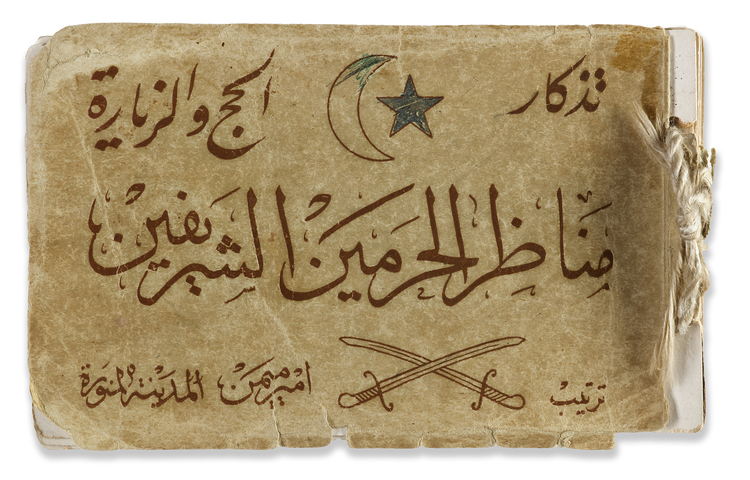 تذكار الحج والزيارة
مَنَاظِر الحَرمَين الشَريفَين
ترتيب امير ميمن المدينة المنورة